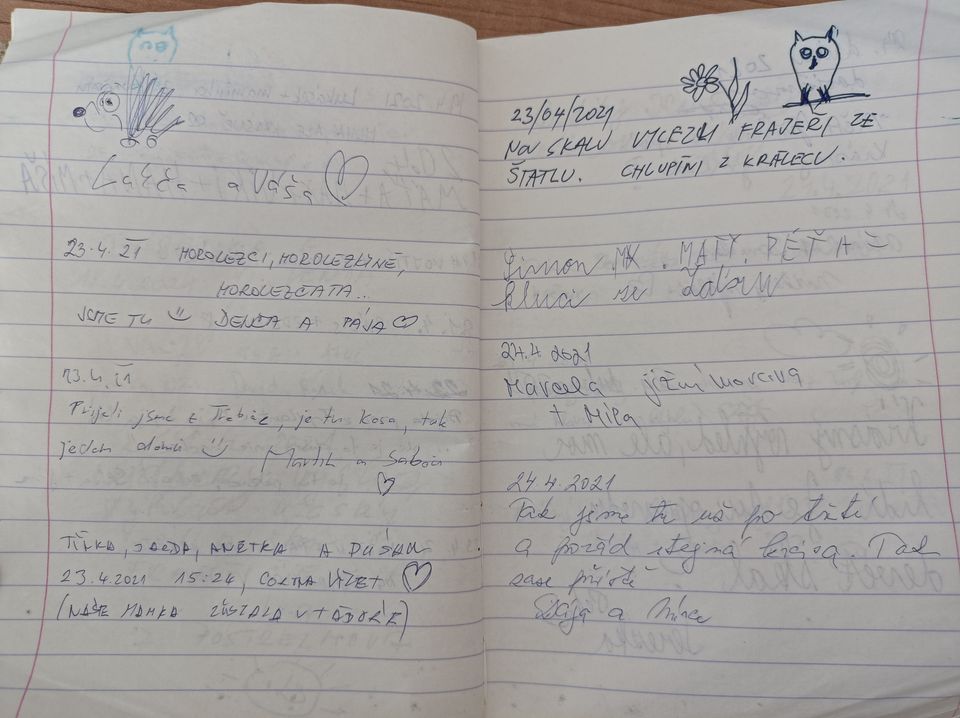 a Váša
23.4.21 HOROLEZCI, HOROLEZKYNĚ,
HOROLEZČATA...
JSME TU DENČA A PÁJA
23.4.21
Přijeli jsme z Třebíče, je tu kosa, tak
jedem domů Martin a
JARDA, ANETKA A DUŠAN
23.4.2021 15:24,
(NAŠE MAMKA ZŮSTALA V TÁBOŘE)
23/04/2021
SKÁLU VYLEZLI FRAJEŘI ZE
ŠTATLU. CHLUPÍNI Z KRÁLECU.
Šimon. MATY. PÉŤA =
kluci ze Žabin
24.4.2021
Marcela
+ Míra
24.4.2021
Tak jsme tu už po třetí
a pořád stejná krása. Tak
zase příště
a